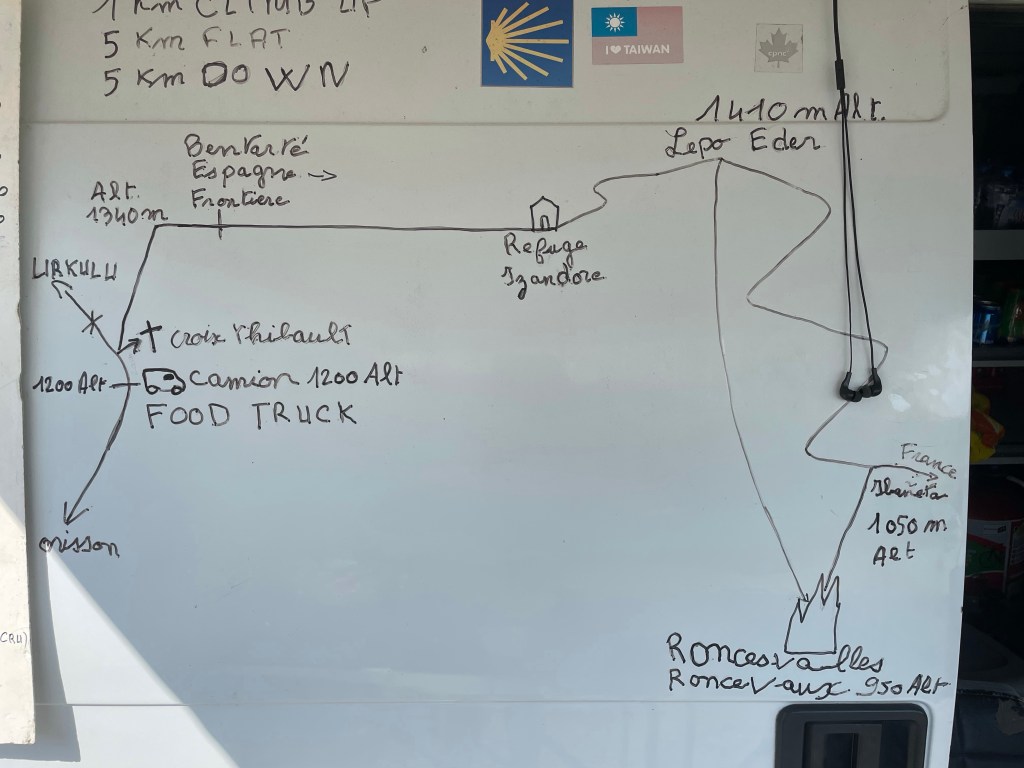 1 Km CLIMB UP
5 Km FLAT
5 Km DOWN
I ❤ TAIWAN
epic
1410 m Alt.
Lepo Eder
Bentarté
Espagne →
Frontiere
Alt.
1340 m
URKULU
Refuge
Izandore
Croix Thibault
1200 Alt
Camion 1200 Alt
FOOD TRUCK
France
Ibañeta
1050 m
Alt
orisson
CRU)
Roncesvalles
Roncevaux. 950 Alt